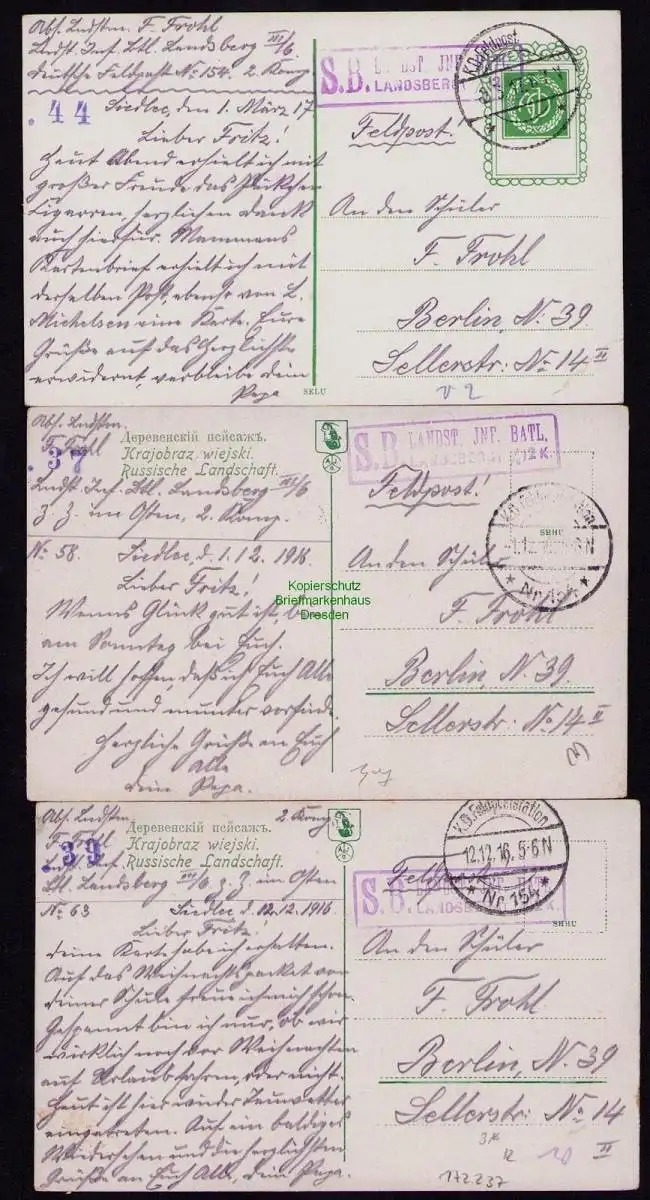 Abs. Ldstm. F. Frohl
Landst. Inf. Btl. Landsberg VII/6
Deutsche Feldpost No 154. 2. Komp.
. 44
Siedlec, den 1. März 17
Lieber Fritz!
Heut Abend erhielt ich mit
großer Freude das Päckchen
Zigarren, herzlichen Dank
auch hierfür. Mammans
Kartenbrief erhielt ich mit
derselben Post, ebenso von L.
Michelsen eine Karte. Eure
Grüße auf das Herzlichste
erwidernt, verbleibe dein
Papa
SELU
S.B. LANDST. INF.
LANDSBERG
K.D. Feldpost
Feldpost!
An den Schüler
F. Frohl
Berlin, N. 39
Sellerstr: No 14 II
V 2
Abs. Ldstm.
F. Frohl
. 37
Деревенскій пейсажъ.
Krajobraz wiejski.
Russische Landschaft.
Landst. Inf. Btl. Landsberg VII/6
Z. Z. im Osten, 2. Komp.
No 58. Siedlec, d. 1.12. 1916
Lieber Fritz!
Wenns Glück gut ist, bin
am Sonntag bei Euch.
Ich will hoffen, daß ich Euch Alle
gesund und munter vorfinde.
Herzliche Grüße an Euch
Alle
Dein Papa.
S.B. LANDST. INF. BATL.
LANDSBERG 2K.
Feldpost!
SHHU
1.12.
6 N
* Nr. 154 *
An den Schüler
F. Frohl
Berlin, N. 39.
Sellerstr: No 14 II
Kopierschutz
Briefmarkenhaus
Dresden
Abs. Ldstm. 2 Komp.
F. Frohl
. 39
Деревенскій пейсажъ.
Krajobraz wiejski.
Russische Landschaft.
Landst. Inf.
Btl. Landsberg VII/6 Z. Z. im Osten
No 63 Siedlec d. 12.12. 1916
Lieber Fritz!
Deine Karte hab ich erhalten.
Auf das Weihnachtspacket von
deiner Schule freue ich mich schon.
Gespannt bin ich nur, ob wir
wirklich noch vor Weihnachten
auf Urlaub fahren, oder nicht.
Heut ist hier wieder Tauwetter
eingetreten. Auf ein baldiges
Wiedersehen und die herzlichsten
Grüße an Euch Alle, dein Papa.
K.D. Feldpoststation
12.12.16. 5-6 N
* Nr. 154 *
Feldpost
S.B. LANDST. INF. BATL.
LANDSBERG
SHHU
An den Schüler
F. Frohl
Berlin, N. 39
Sellerstr: No 14
II
172237